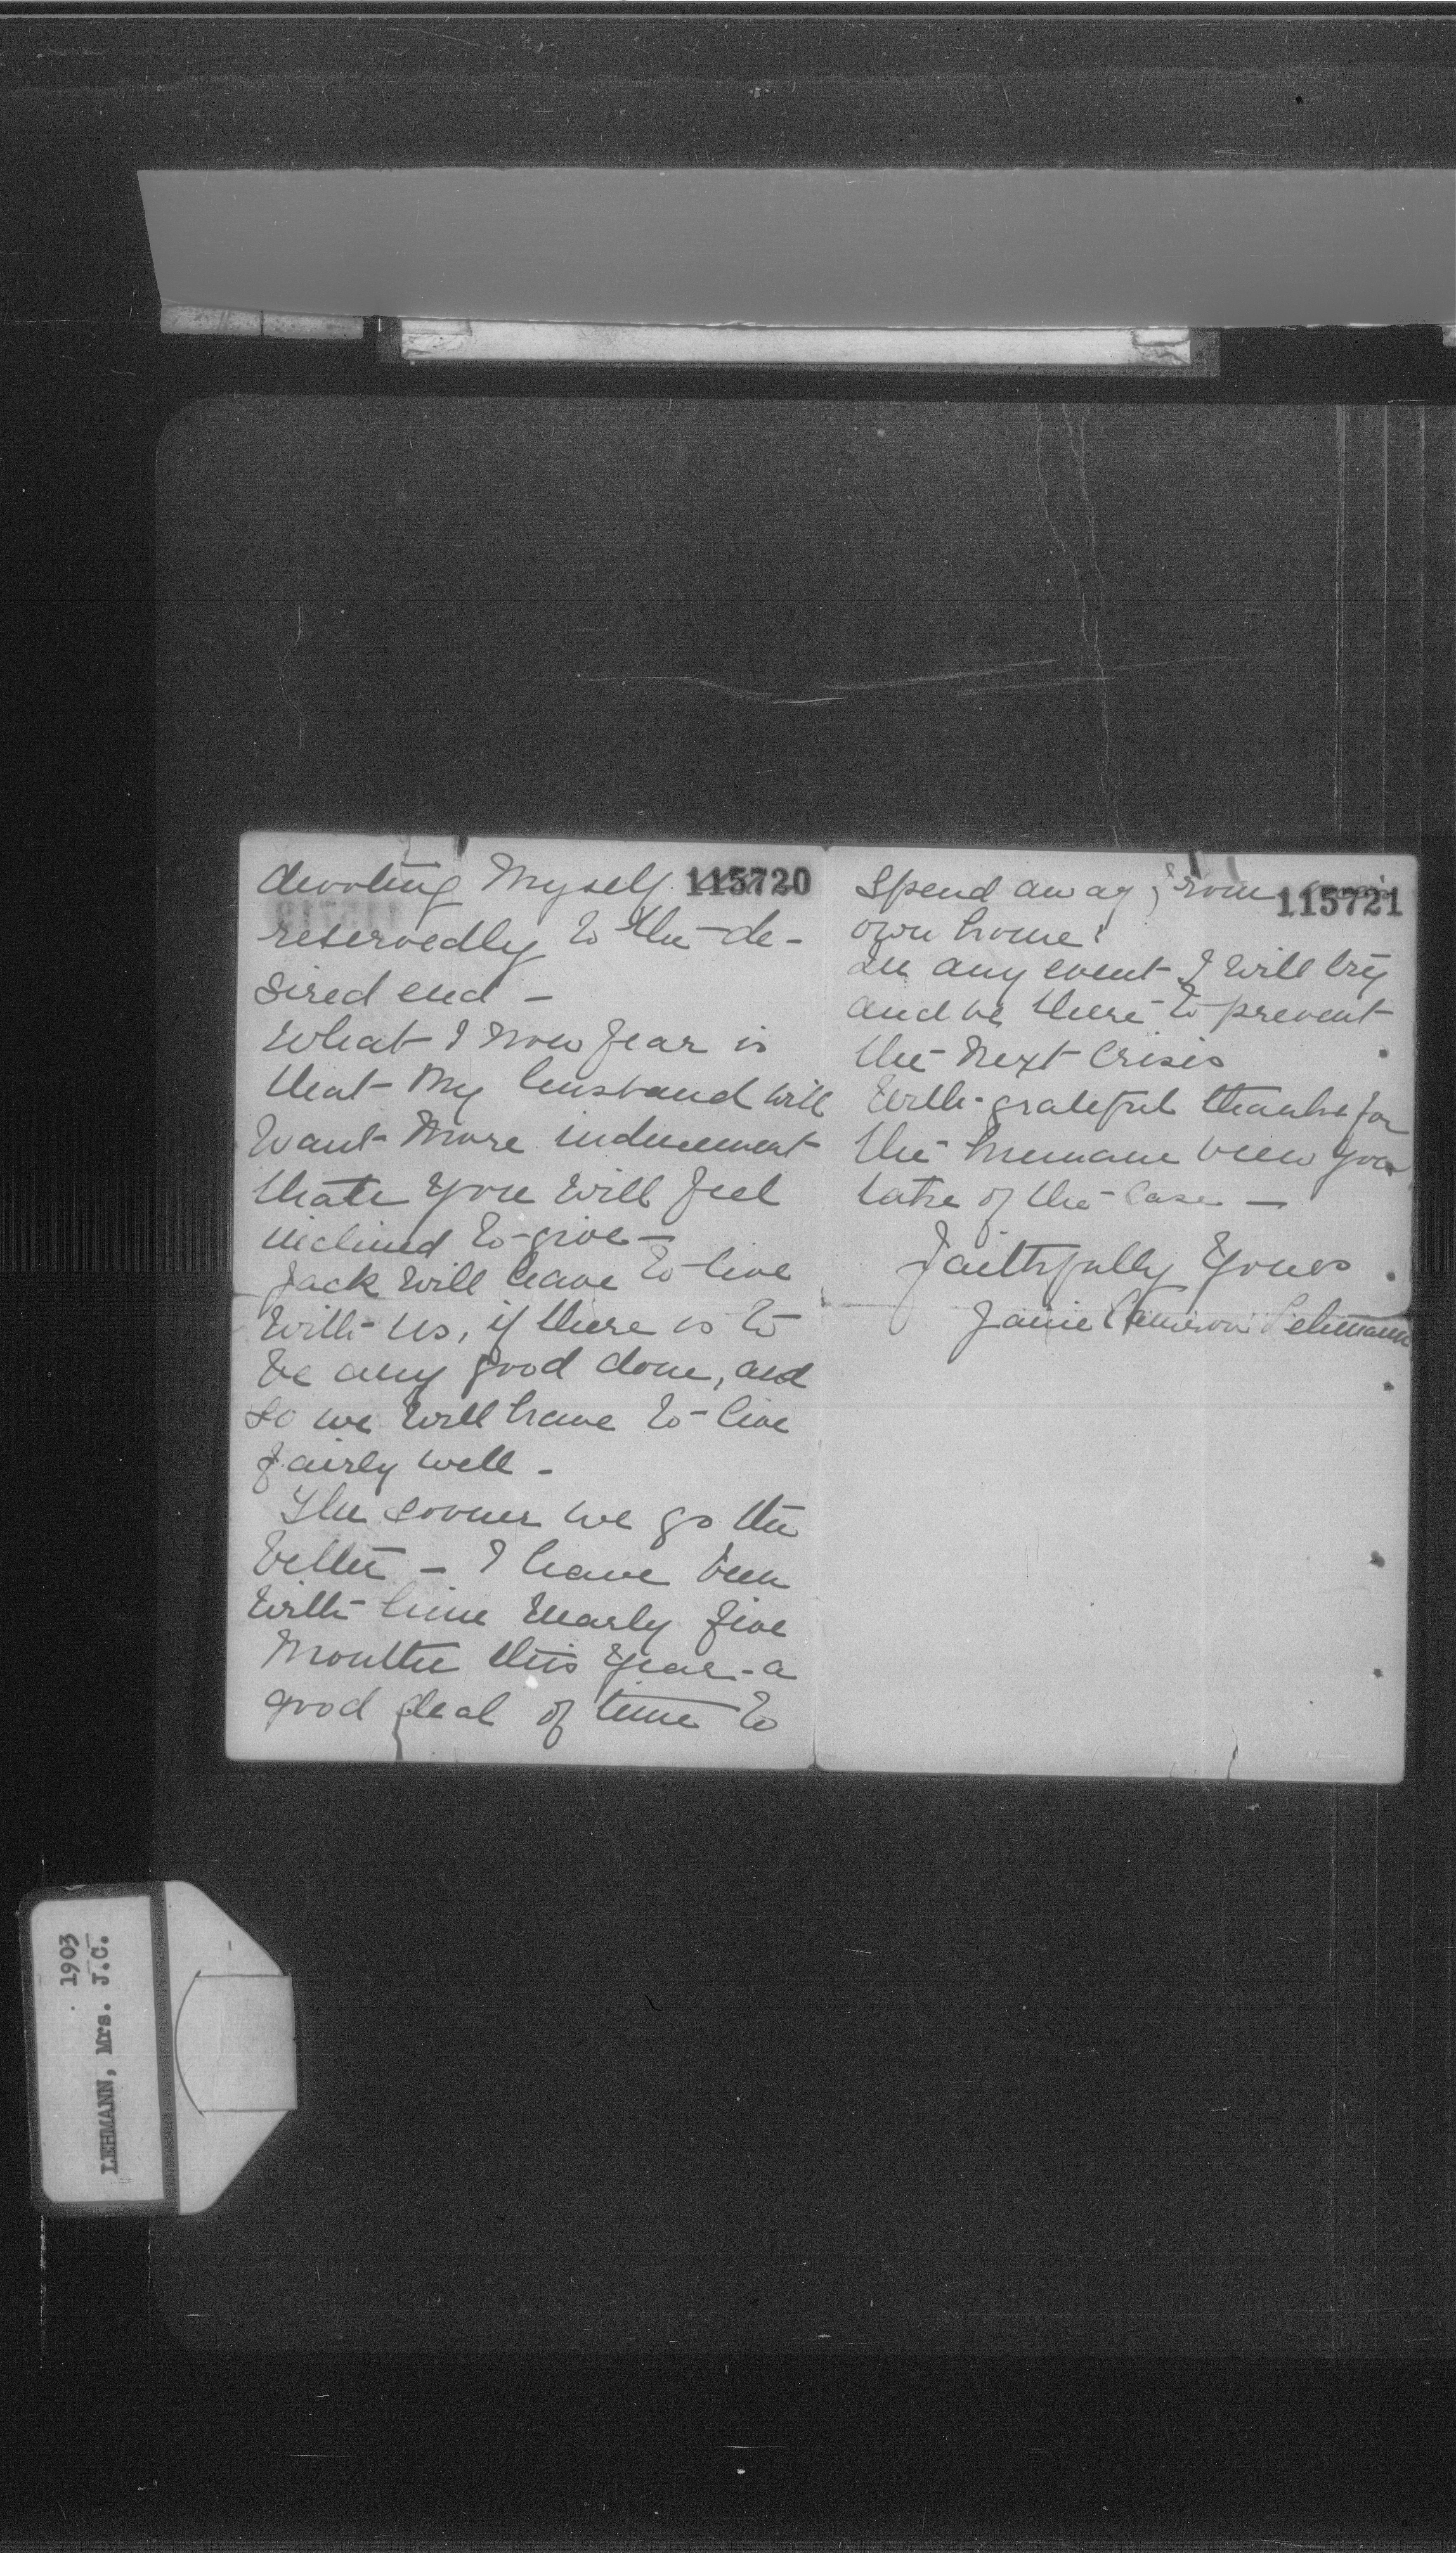 devoting myself 115720
reservedly to the de-
sired end -
What I now fear is
that my husband will
want more inducement
than you will feel
inclined to give -
Jack will have to live
with us, if there is to
be any good done, and
so we will have to live
fairly well -
The sooner we go the
better - I have been
with him nearly five
months this year - a
good deal of time to
spend away from 115721
own home!
In any event I will try
and be there to prevent
the next crisis
With grateful thanks for
the humane view you
take of the case -
Faithfully Yours
Janie Cameron Lehmann
1903
LEHMANN, Mrs. J.C.